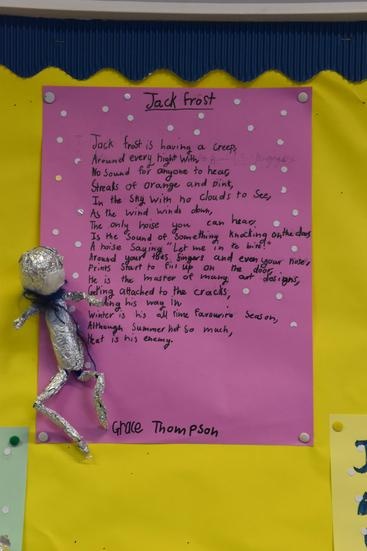 Jack Frost
Jack Frost is having a creep,
Around every night with
No sound for anyone to hear,
Streaks of orange and pink,
In the Sky with no clouds to See,
As the wind winds down,
The only noise you can hear,
Is the Sound of Something knocking on the door,
A noise Saying "Let me in to bite!"
Around your toes, fingers and even your nose,
Prints Start to fill up on the door,
He is the master of many art designs,
Getting attached to the cracks,
his way in
Winter is his all time favourite Season,
Although Summer not So much,
Heat is his enemy.
Grace Thompson